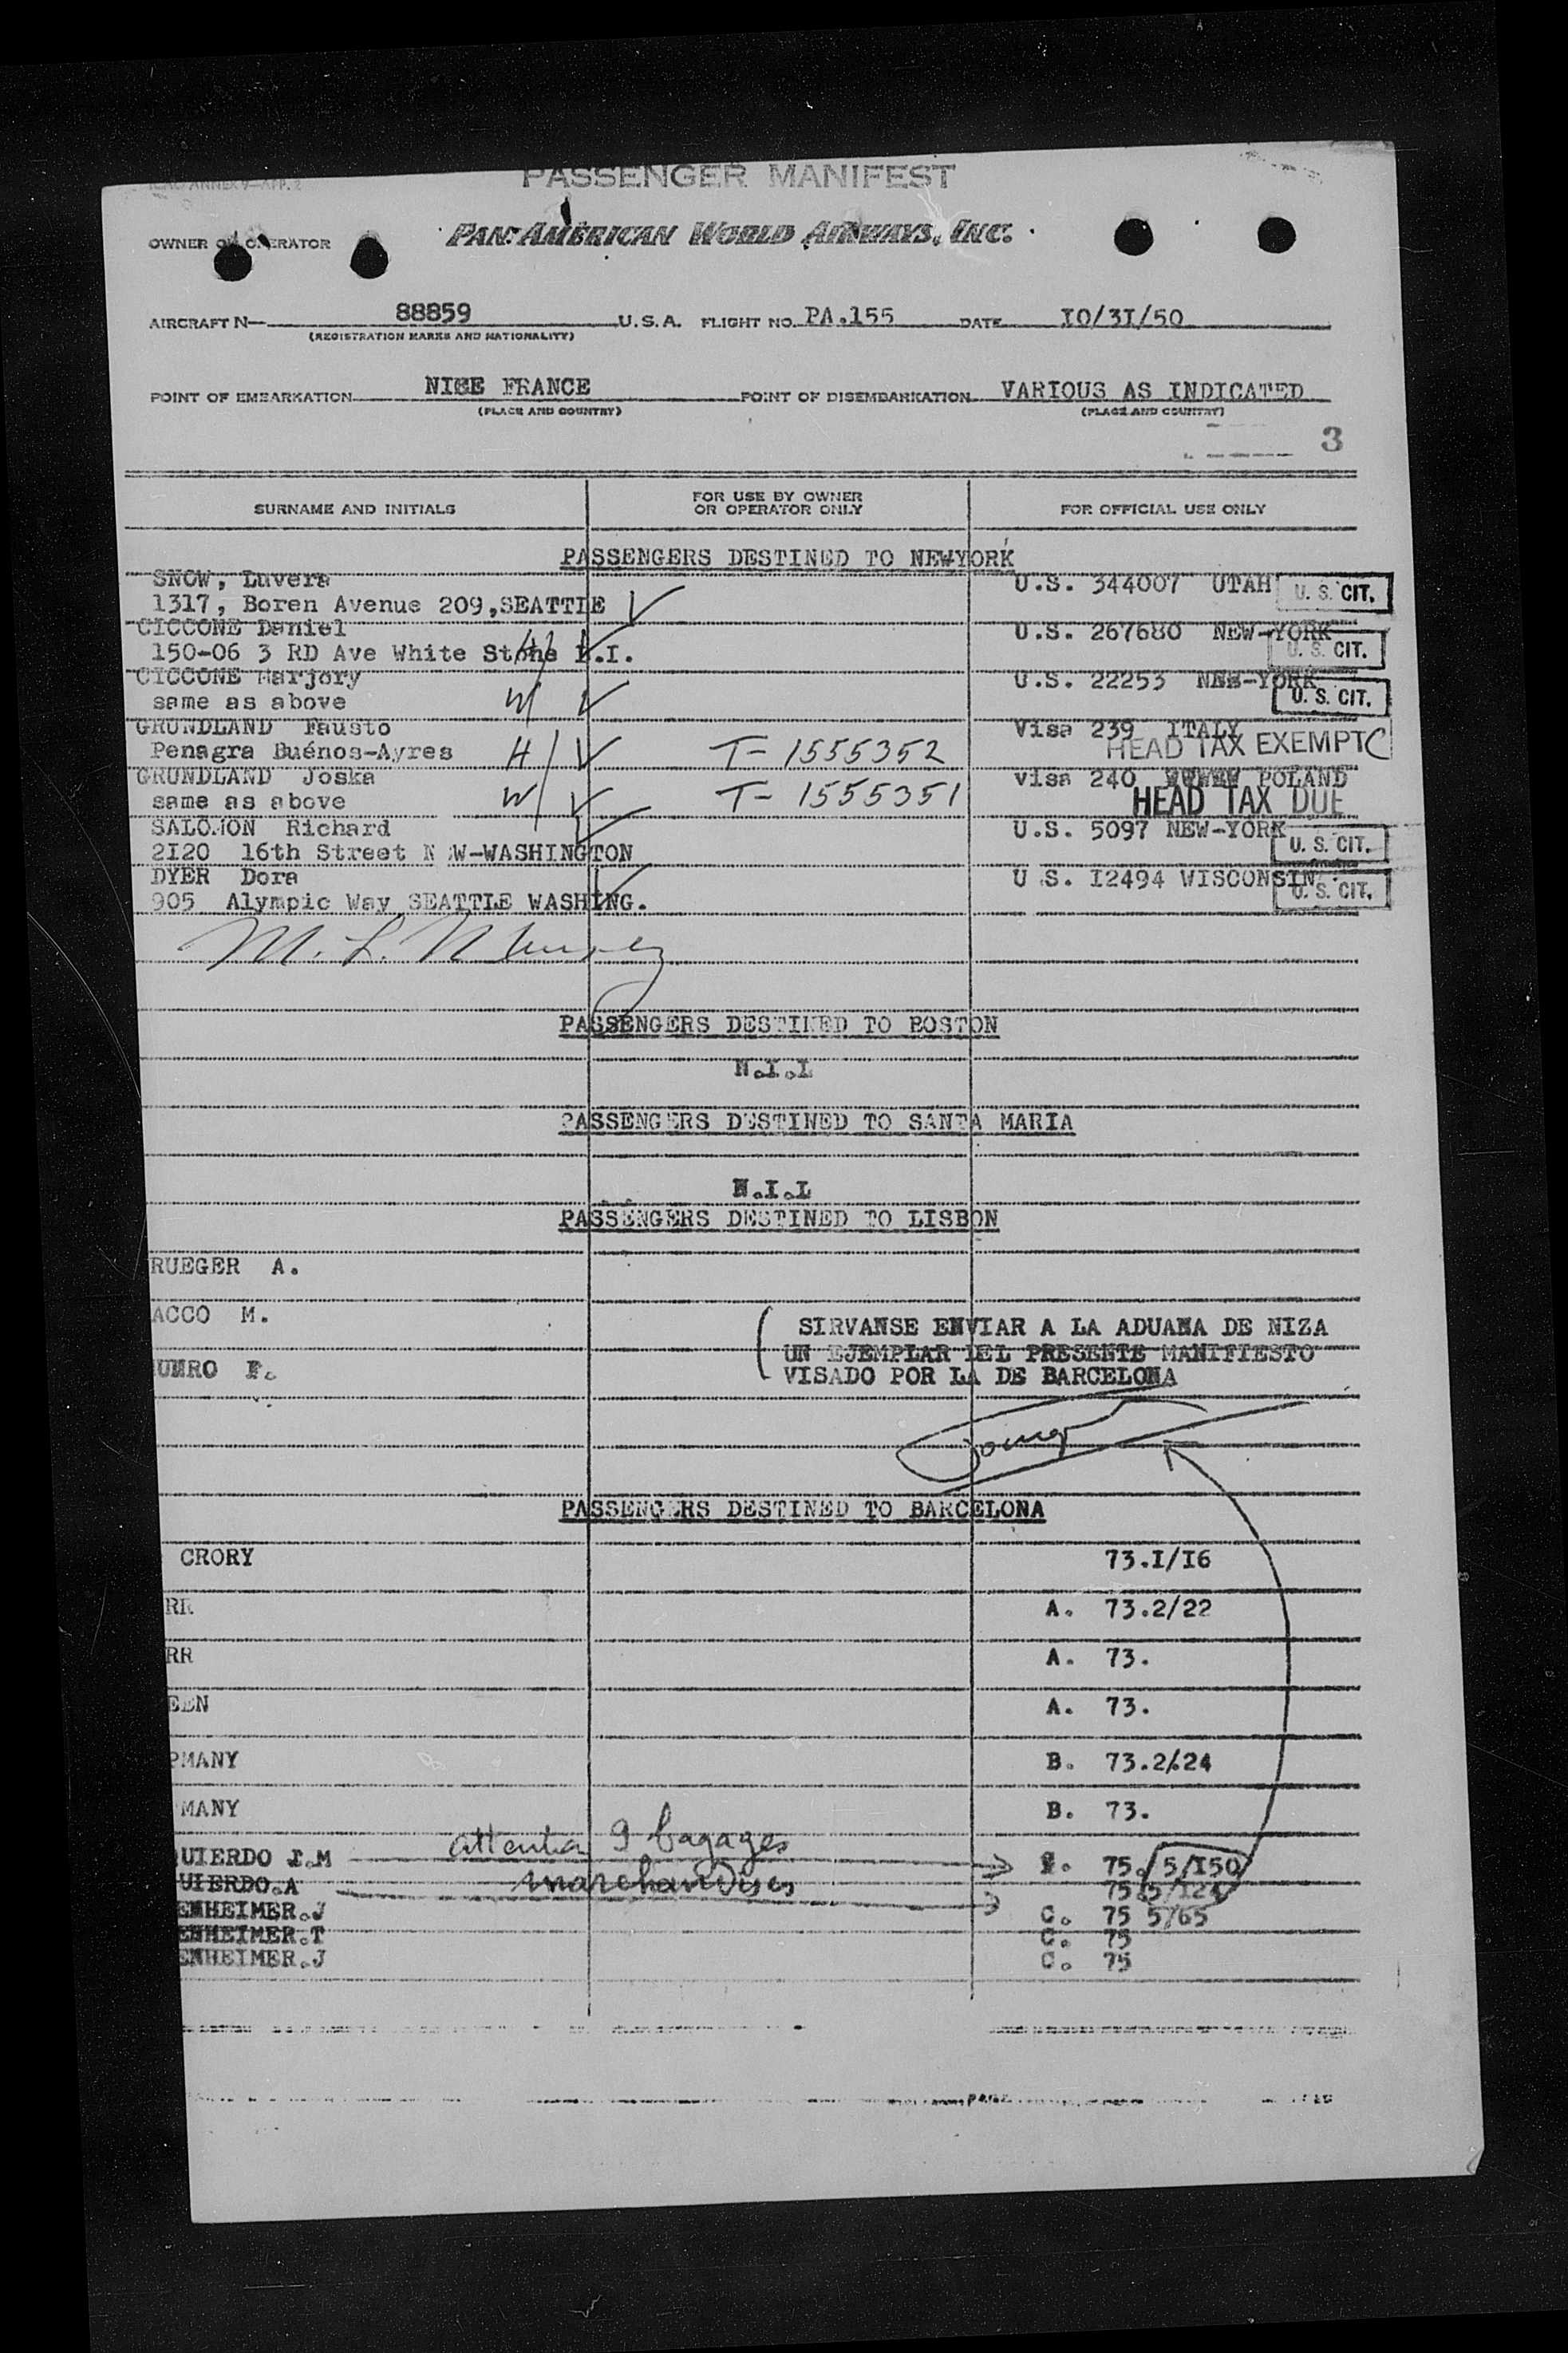 ICAO ANNEX 9—APP. 2
PASSENGER MANIFEST
OWNER OR OPERATOR PAN AMERICAN WORLD AIRWAYS, INC.
AIRCRAFT N— 88859 U.S.A. FLIGHT NO. PA.155 DATE IO/3I/50
(REGISTRATION MARKS AND NATIONALITY)
POINT OF EMBARKATION NICE FRANCE POINT OF DISEMBARKATION VARIOUS AS INDICATED
(PLACE AND COUNTRY) (PLACE AND COUNTRY)
3
SURNAME AND INITIALS FOR USE BY OWNER OR OPERATOR ONLY FOR OFFICIAL USE ONLY
PASSENGERS DESTINED TO NEWYORK
SNOW, Luvera U.S. 344007 UTAH U. S. CIT.
1317, Boren Avenue 209,SEATTLE
CICCONE Daniel U.S. 267680 NEW-YORK
150-06 3 RD Ave White Stone L.I. H U. S. CIT.
CICCONE Marjory U.S. 22253 NEW-YORK
same as above W U. S. CIT.
GRUNDLAND Fausto Visa 239 ITALY
Penagra Buénos-Ayres H T- 1555352 HEAD TAX EXEMPT C
GRUNDLAND Joska visa 240 POLAND
same as above W T- 1555351 HEAD TAX DUE
SALOMON Richard U.S. 5097 NEW-YORK
2I20 16th Street N W-WASHINGTON U. S. CIT.
DYER Dora U.S. I2494 WISCONSIN
905 Alympic Way SEATTLE WASHING. U. S. CIT.
M. L.
PASSENGERS DESTINED TO BOSTON
N.I.L
PASSENGERS DESTINED TO SANTA MARIA
N.I.L
PASSENGERS DESTINED TO LISBON
RUEGER A.
ACCO M.
SIRVANSE ENVIAR A LA ADUANA DE NIZA
UN EJEMPLAR DEL PRESENTE MANIFIESTO
UNRO F.
VISADO POR LA DE BARCELONA
PASSENGERS DESTINED TO BARCELONA
CRORY 73.I/I6
RR A. 73.2/22
RR A. 73.
EEN A. 73.
PMANY B. 73.2/.24
MANY B. 73.
attention 9 bagages
UIERDO J.M 75. 5/I50
marchandises
UIERDO.A 75 5/124
ENHEIMER.J C. 75 5/65
ENHEIMER.T C. 75
ENHEIMER.J C. 75
PAGE